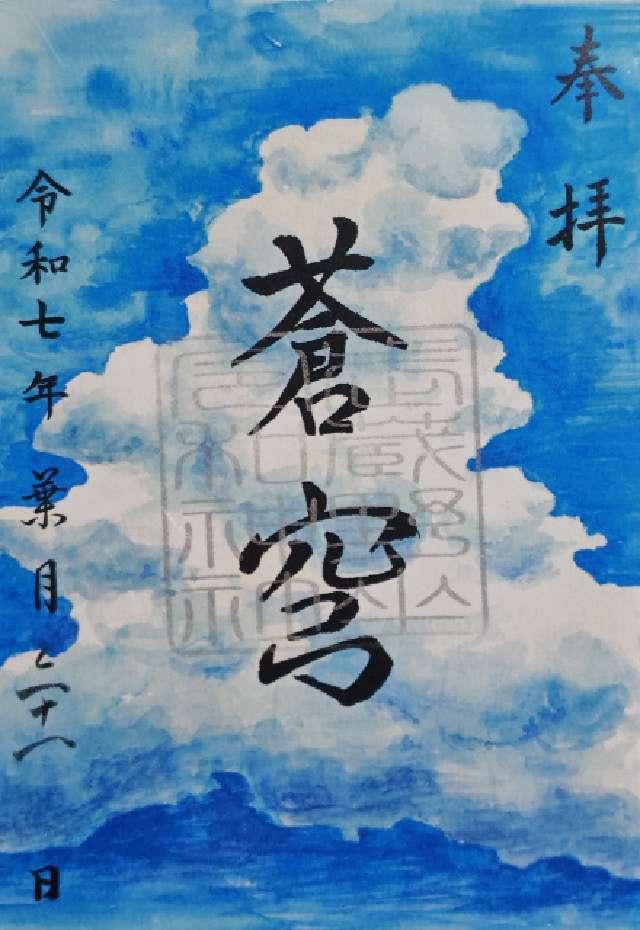 奉拝
蒼穹
令和七年葉月二十八日